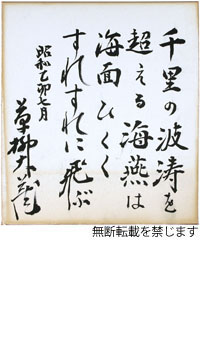 千里の波涛を
超える海燕は
海面ひくく
すれすれに飛ぶ
昭和乙卯七月
草柳大蔵
無断転載を禁じます